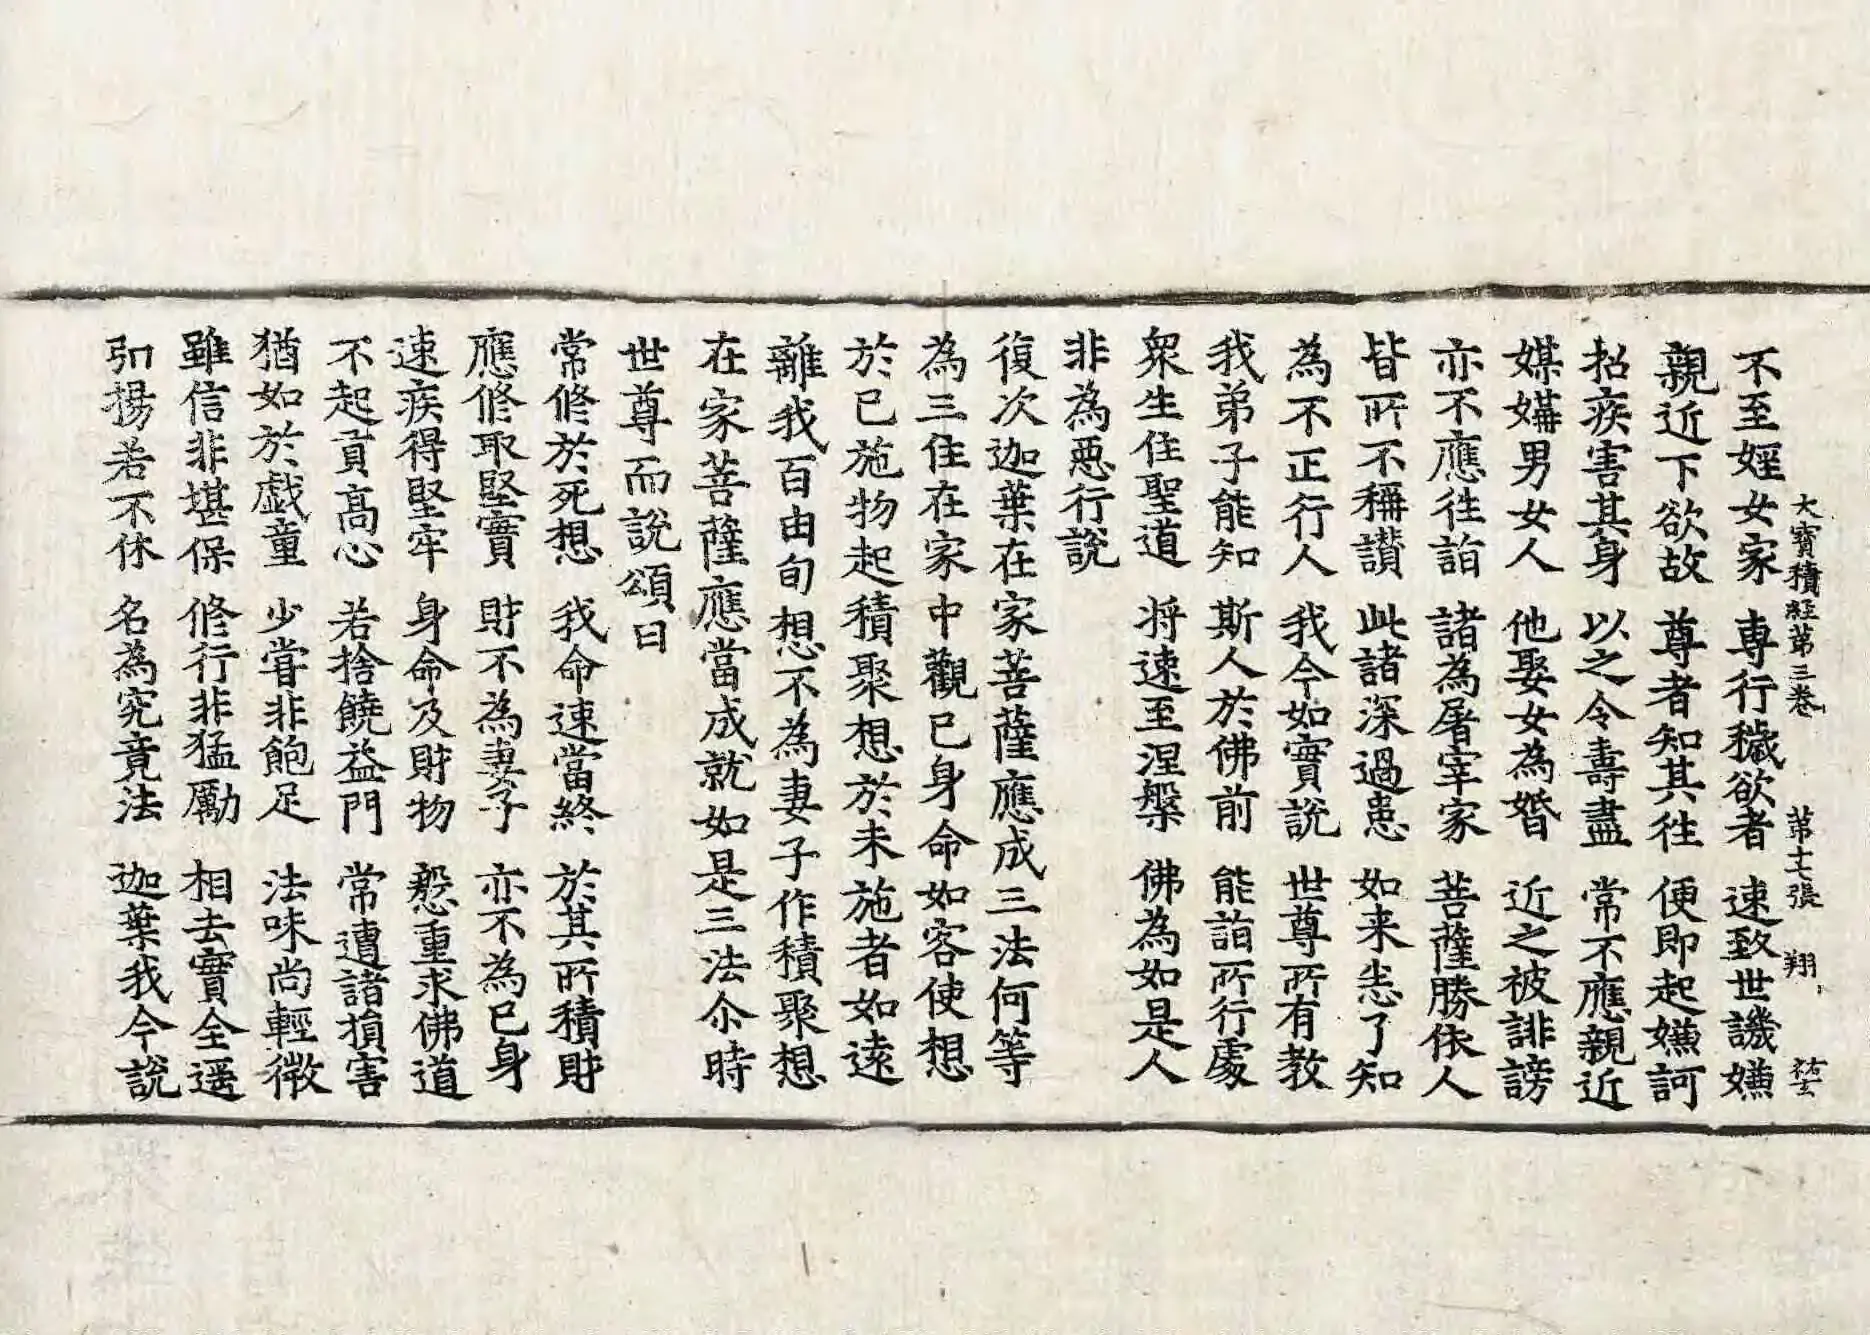 大寶積經第三卷 第十七張 翔
不至婬女家 専行穢欲者 速致世譏嫌
親近下欲故 尊者知其徃 便即起嫌訶
招疾害其身 以之令壽盡 常不應親近
媒媾男女人 他娶女為婚 近之被誹謗
亦不應徃詣 諸為屠宰家 菩薩勝依人
皆所不稱讃 此諸深過患 如来悉了知
為不正行人 我今如實説 世尊所有教
我弟子能知 斯人於佛前 能詣所行處
衆生住聖道 将速至涅槃 佛為如是人
非為惡行説
復次迦葉在家菩薩應成三法何等
為三住在家中觀已身命如客使想
於已施物起積聚想於未施者如遠
離我百由旬想不為妻子作積聚想
在家菩薩應當成就如是三法尒時
世尊而説頌曰
常修於死想 我命速當終 於其所積財
應修取堅實 財不為妻子 亦不為已身
速疾得堅牢 身命及財物 慇重求佛道
不起貢高心 若捨饒益門 常遭諸損害
猶如於戯童 少甞非飽足 法味尚輕微
雖信非堪保 修行非猛勵 相去實全遥
引揚若不休 名為究竟法 迦葉我今説